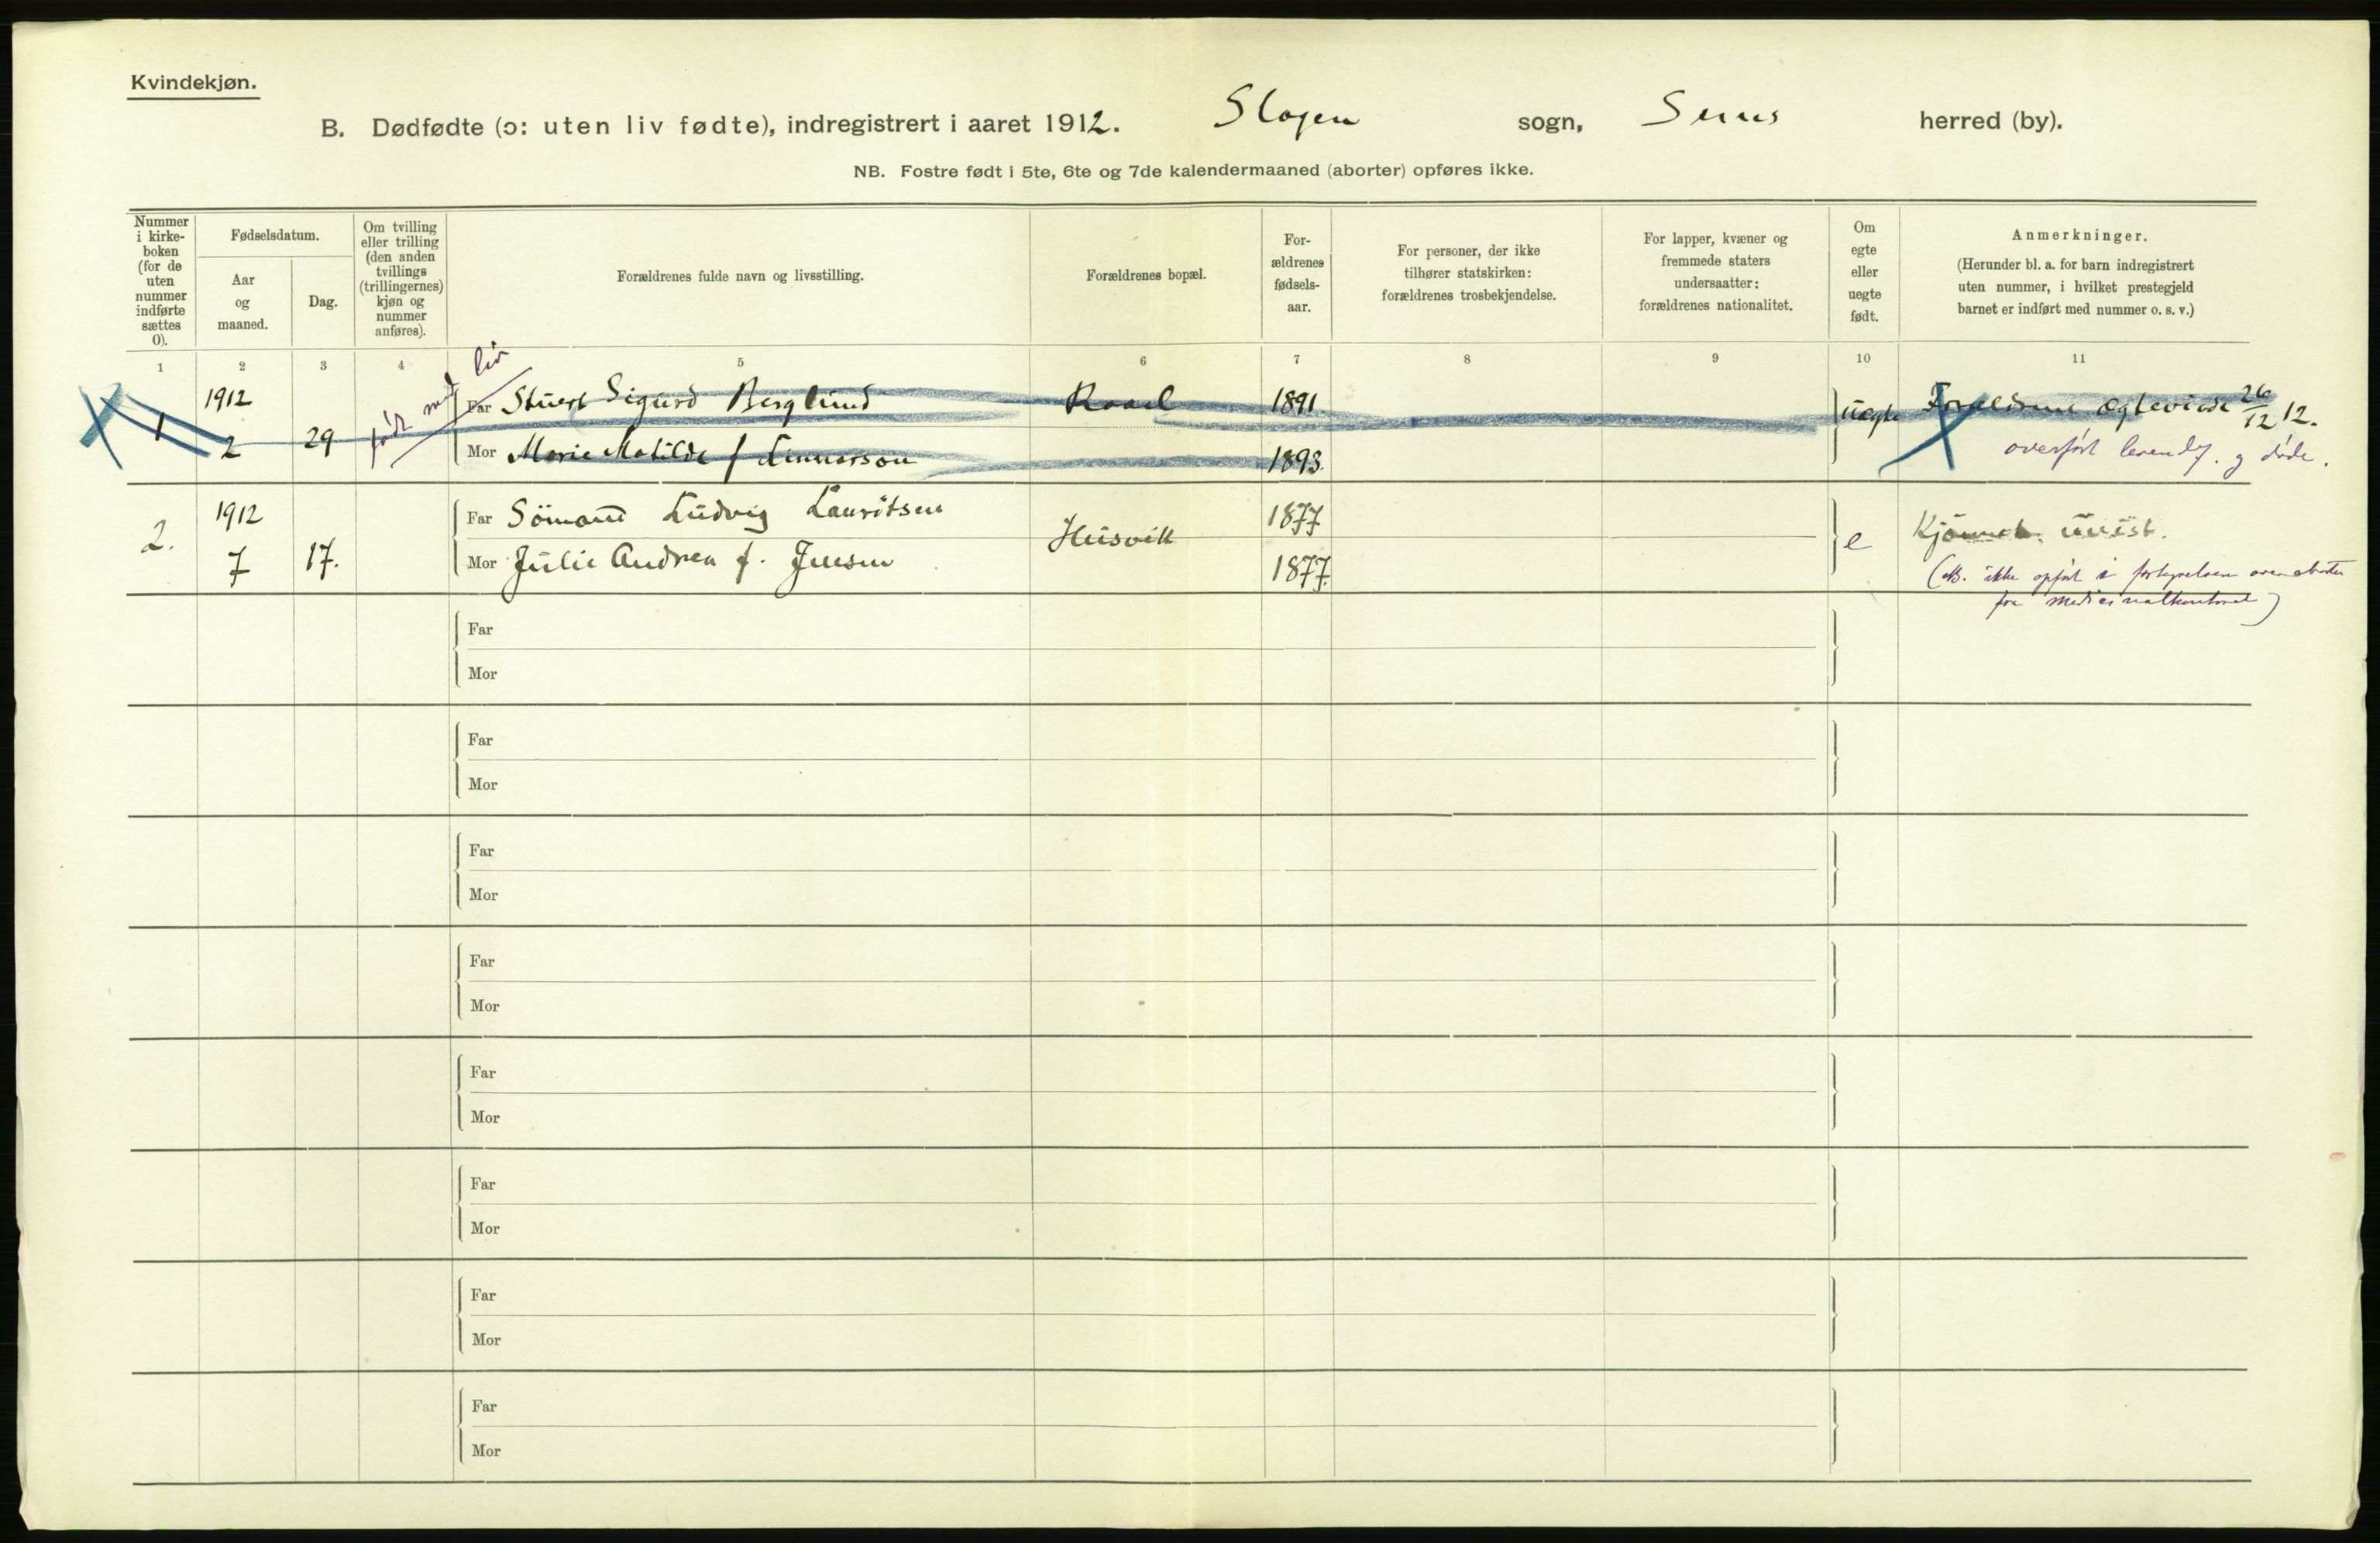 Kvindekjøn.
B. Dødfødte (ɔ: uten liv fødte), indregistrert i aaret 1912. Slagen sogn, Sems herred (by).
NB. Fostre født i 5te, 6te og 7de kalendermaaned (aborter) opføres ikke.
Nummer
i kirke-
boken
(for de
uten
nummer
indførte
sættes
0).
Fødselsdatum.
Aar
og
maaned.
Dag.
Om tvilling
eller trilling
(den anden
tvillings
(trillingernes)
kjøn og
nummer
anføres).
Forældrenes fulde navn og livsstilling.
Forældrenes bopæl.
For-
ældrenes
fødsels-
aar.
For personer, der ikke
tilhører statskirken:
forældrenes trosbekjendelse.
For lapper, kvæner og
fremmede staters
undersaatter:
forældrenes nationalitet.
Om
egte
eller
uegte
født.
Anmerkninger.
(Herunder bl. a. for barn indregistrert
uten nummer, i hvilket prestegjeld
barnet er indført med nummer o. s. v.)
1 2 3 4 5 6 7 8 9 10 11
født med liv
1 1912 2 29 Far Stuert Sigurd Berglund Raael 1891 Uægte Forældrene ægteviede 26/12 12.
Mor Marie Matilde f Linnarson 1893. overført levendef. g døde.
2. 1912 7 17. Far Sömand Ludvig Lauritsen Husvik 1877 e Kjønnet uvist.
Mor Julie Andrea f. Jensen 1877. (NB. ikke opført i fortegnelsen over aborter
fra Medicinalkontoret)
Far
Mor
Far
Mor
Far
Mor
Far
Mor
Far
Mor
Far
Mor
Far
Mor
Far
Mor